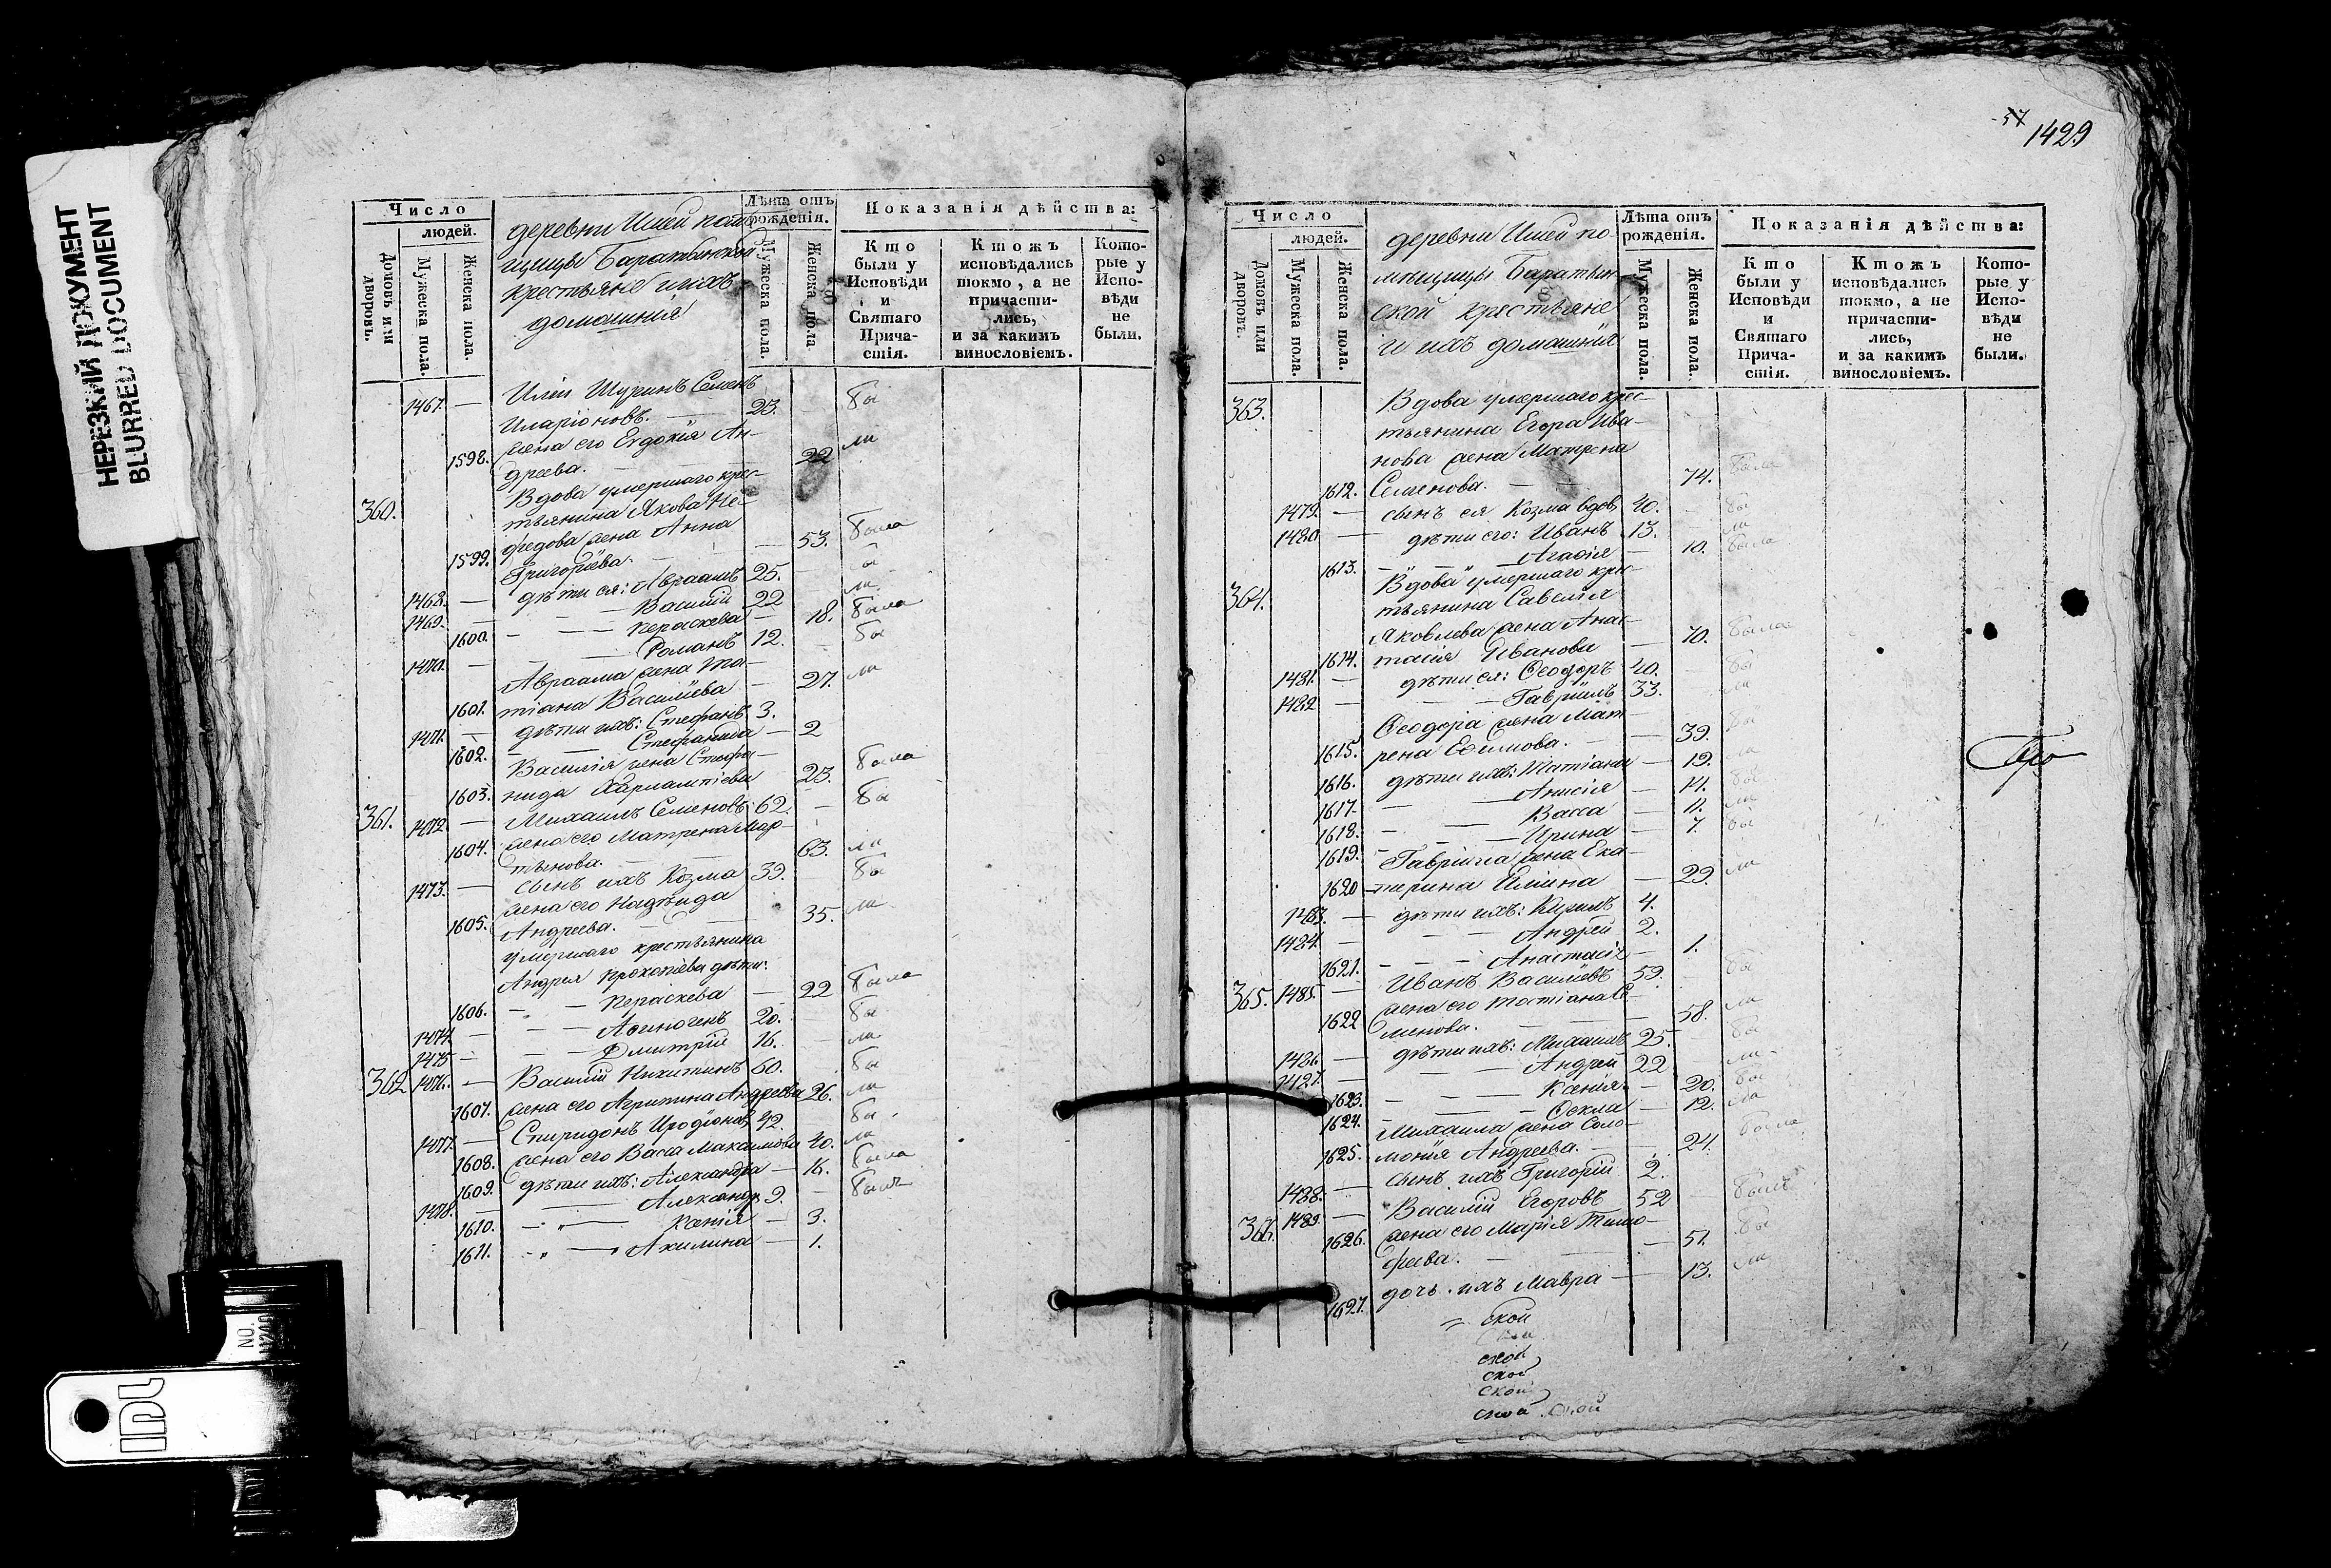 НЕРЕЗКИЙ ДОКУМЕНТ
BLURRED DOCUMENT
Число
людей.
Домовъ или дворовъ.
Мужеска пола.
Женска пола.
деревни Ишей поме-
щицы Баратынской
крестьяне и ихъ
домашнія
Лѣта отъ
рожденія.
Мужеска пола.
Женска пола.
Показанія дѣйства:
Кто
были у
Исповѣди
и
Святаго
Прича-
стія.
Ктожъ
исповѣдались
токмо, а не
причасти-
лись,
и за какимъ
винословіемъ.
Кото-
рые у
Испо-
вѣди
не
были.
Шуринъ Семенъ
1467. — Иларіоновъ. — 23. Бы
жена его Евдокія Ан-
1598. дреева. — 22 ли
360. Вдова умершаго крес-
тьянина Якова Не-
федова жена Анна
1599. Григорьева. — 53. Была
1468. — дѣти ея: Авраамъ 25. бы
1469. — Василій 22 ли
1600. — Пераскева — 18. Была
1470. — Романъ 12. Бы
Авраама жена Та-
1601. тіана Васильева — 27. ли
1471. — дѣти ихъ: Стефанъ 3.
1602. — Стефанида — 2
Василія жена Стефа-
1603. нида Харлампіева 23. Была
361. 1472. — Михаилъ Семеновъ 62. — Бы
1604. жена его Матрена Мар-
тынова. 63. ли
1473. — сынъ ихъ Козма 39. Бы
жена его Надежда
1605. Андреева. — 35. ли
умершаго крестьянина
Андрея Прокопіева дѣти:
1606. — Пераскева — 22 Была
1474. — Аѳиногенъ 20. Бы
1475 — Дмитрій 16. — ли
362 1476. — Василій Никитинъ 60. Бы
1607. жена его Агрипина Андреева 26. ли
1477. — Спиридонъ Иродіоновъ 42. Бы
1608. жена его Васса Максимова 40. ли
1609. дѣти ихъ: Александра — 16. Была
1478. — Александръ 9. — Былъ
1610. — Ксенія — 3.
1611. — Акилина — 1.
57
1429
Число
людей.
Домовъ или дворовъ.
Мужеска пола.
Женска пола.
деревни Ишей по-
мещицы Баратын-
ской крестьяне
и ихъ домашнія
Лѣта отъ
рожденія.
Мужеска пола.
Женска пола.
Показанія дѣйства:
Кто
были у
Исповѣди
и
Святаго
Прича-
стія.
Ктожъ
исповѣдались
токмо, а не
причасти-
лись,
и за какимъ
винословіемъ.
Кото-
рые у
Испо-
вѣди
не
были.
363. Вдова умершаго крес-
тьянина Егора Ива-
нова жена Матрена
1612. Семенова. — 74. Была
1479. — сынъ ея Козма вдов. 40. Бы
1480 — дѣти его: Иванъ 13. ли
1613. — Агаѳія — 10. Была
364. Вдова умершаго крес-
тьянина Савелія
Яковлева жена Анас-
1614. тасія Иванова — 70. Была
1481. — дѣти ея: Ѳеодоръ 40. Бы
1482 — Гавріилъ 33. ли
Ѳеодора жена Мат-
1615. рена Ефимова. — 39. Бы
1616. дѣти ихъ: Татіана — 19. ли
1617. — Анисія — 14. Бы
1618. — Васса — 11. ли
1619. — Ирина — 7. Бы
Гавріила жена Ека-
1620 терина Ильина — 29. ли
1483. — дѣти ихъ: Кирилъ 4.
1484. — Андрей 2.
1621. — Анастасія — 1.
365. 1485. — Иванъ Васильевъ 59. Бы
жена его Татіана Се-
1622 менова. — 58. ли
1486. — дѣти ихъ: Михаилъ 25. Бы
1487. — Андрей 22 ли
1623. — Ксенія — 20. Бы
1624. — Ѳекла — 12. ли
Михаила жена Соло-
1625. монія Андреева. — 24. Была
1488. — сынъ ихъ Григорій 2.
366. 1489. — Василій Егоровъ 52 Былъ
1626. жена его Марія Тимо-
феева. — 51. Бы
1627. дочь ихъ Мавра — 13. ли
ской
ской
ской
ской
ской ской
NO.
IDC